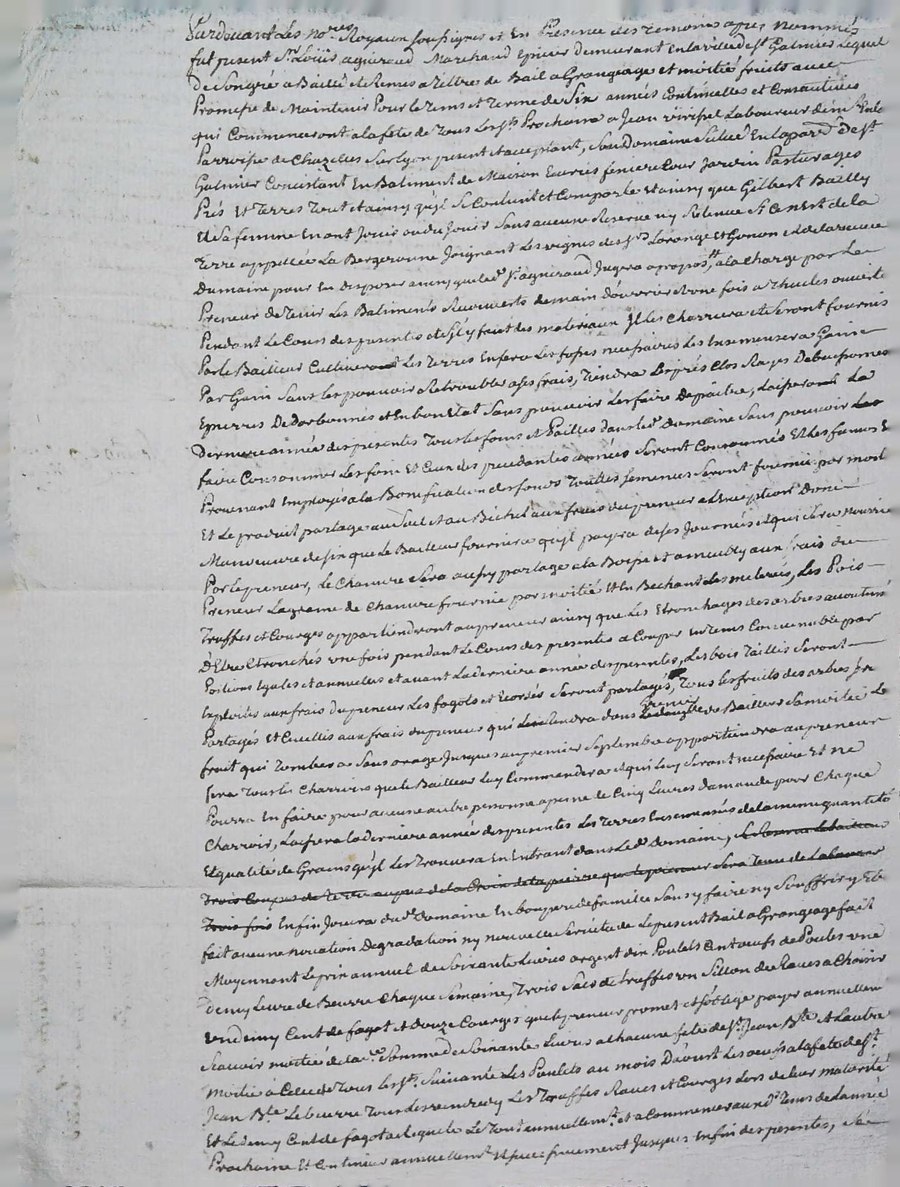 Pardevant Les no.res Royaux soussignés et En Presence des temoins apres nommés
fut present Sr Loüis agniraud Marchand Epicier demeurant Enlaville de St Galmier Lequel
De Songré a Baillé et Remis a tiltre de Bail a Grangeage et moitié fruits avec
Promesse de Maintenir Pour le tems et terme de Six années Continuelles et Consecutives
qui Commenceront alafete de Tous Les sts Prochaine a Jean Laboureur
Parroisse de Chazelles Sur Lyon present et acceptant, Son Domaine Situé Enlaparr.se de St
Galmier Consistant En Batiment de Maison Ecurie feniere Cour Jardin Pasturages
Prés Et Terres Tout et ainsy quil Se Contient et Comporte et ainsy que Gilbert Bailly
Et Sa femme En ont Joüis ou du Jouir Sans aucune Reserve ny Retenue Si Ce n'Est de la
Terre appellée La Bergeronne Joignant Les vignes des Srs Lorange Et Gonon Et de la
Domaine pour En disposer ainsy que led. Sr agniraud Jugera apropos, ala Charge par Le
Preneur de tenir Les Batiments Recouverts de main D'ouvrier Et une fois a Thuiles ouverte
Pendant Le Cours des presentes et Sil y fait des materiaux Il les Charriera et Seront fournis
Par le Bailleur Cultivera Les Terres En fera Les fosses necessaires Les Ensemensera Gain
Par Gain Sans les pouvoir Retroubler a ses frais, Tiendra Les prés Clos Razes De Buissons
Epierres De darbonnes et En bon Etat Sans pouvoir Les faire Depaitre, Laissera La
Derniere année des presentes Tous Les foins et Pailles dans led. Domaine Sans pouvoir Les
faire Consommer Les foin Et Ceux des precedantes années Seront Consommés Et Les fumiers En
Provenant Employés ala Bonification des fonds Toutes Semences Seront fournies par moitié
Et Le produit partagé au Sol et au Bichet aux frais du preneur a L'Exception D'une
Manoeuvre de fin que Le Bailleur fournira quil payra de ses Journées et qui Sera Nourrie
Par Le preneur, Le Chanvre Sera aussy partagé ala Bosse Et annubly aux frais du
Preneur La graine de Chanvre fournie par moitié Et En Bechant Les Les Pois
Truffes et Courges appartiendront au preneur ainsy que Les Etronchages des arbres accoutumé
D'Etre Etronchés une fois pendant Le Cours des presentes a Couper En tems Convenable par
Portions Egales et annuelles et avant La derniere année des presentes, Les bois Taillis Seront
Exploités aux frais du preneur Les fagots et Ecorsés Seront partagés, Tous les fruits des arbres
Partagés Et Cueillis aux frais du preneur qui dans Grenier du Bailleur Sa moitié Le
fruit qui Tombera Sans orage Jusques au premier Septembre appartiendra au preneur
fera Tous Les Charrois que Le Bailleur Luy Commandera Et qui Luy Seront necessaire Et ne
Pourra En faire pour aucune autre personne a peine de Cinq Livres d'amande pour Chaque
Charroir, Laissera La derniere année des presentes Les Terres Ensemensés de la meme quantité
Et qualité de Grains quil Les Trouvera En Entrant dans Led. domaine,
Trois Coupes de Terre au pas de la Croix de la pierre que Le preneur Sera Tenu de Labourer
Trois fois Enfin Joüira dud. Domaine En bon pere de famille Sans y faire ny Souffrir quil Soit
fait aucune novation Degradation ny nouvelle Servitude Le present Bail a Grangeage fait
Moyennant Le prix annuel de Soixante Livres argent dix Poulets Cent oeufs de Poules une
demy Livre de Beurre Chaque Semaine, Trois Sacs de truffes un Sillon des Raves a Choisir
un demy Cent de fagot et Douze Courges que Le preneur promet et S'oblige payer annuellement
Scavoir moitié de lad. Somme de Soixante Livres a Chacune fete de St Jean Bte Et L'autre
Moitié a Celle de Tous Les Sts Suivante Les Poulets au mois D'aoust Les oeufs ala fete de St
Jean Bte Le beurre Tous Les vendredy Les Truffes Raves et Courges Lors de Leur maturité
Et Le demy Cent de fagot Le Tout annuellemt Et a Commencer aux d. Tems de L'année
Prochaine Et Continuer annuellemt Et successivement Jusques En fin des presentes,